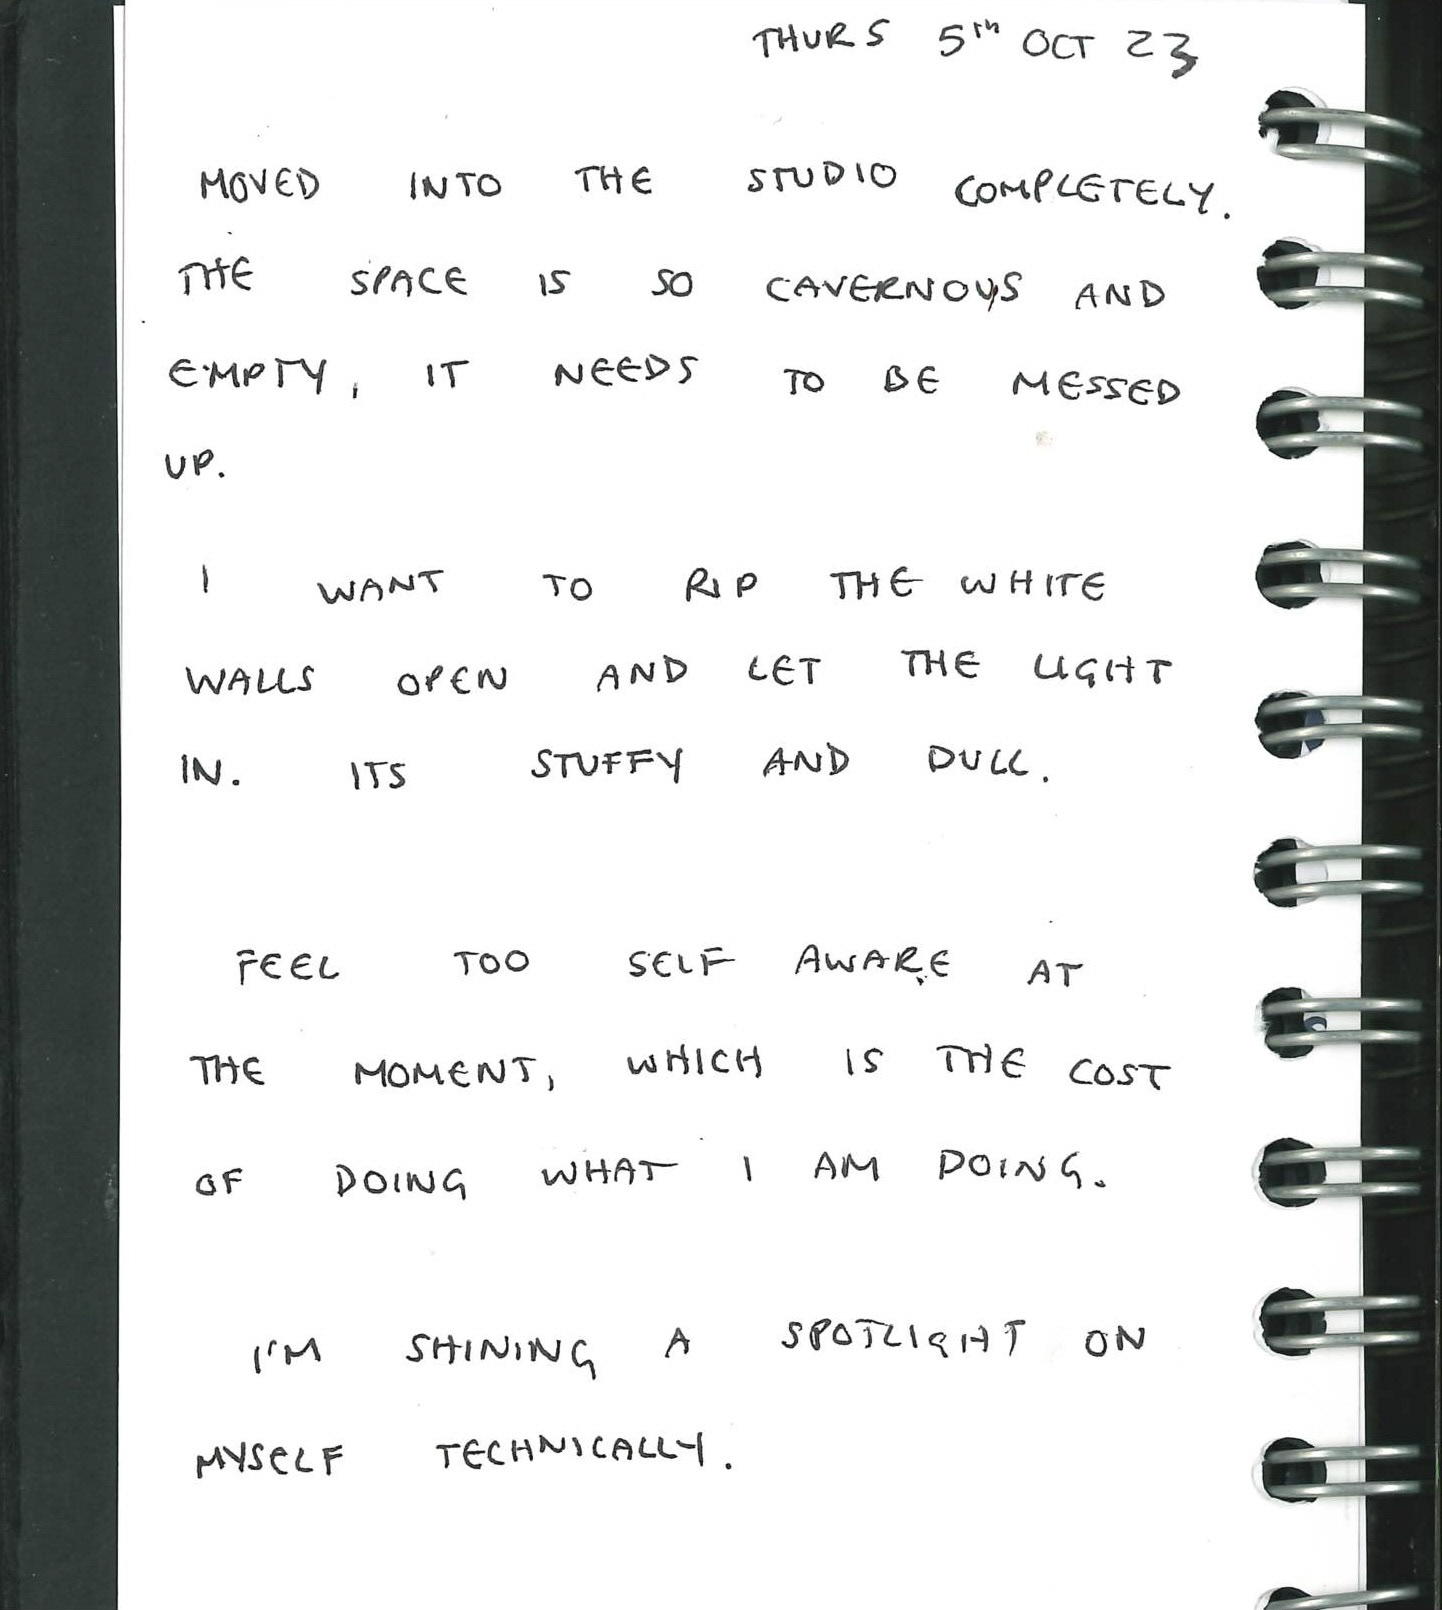 THURS 5TH OCT 23
MOVED INTO THE STUDIO COMPLETELY.
THE SPACE IS SO CAVERNOUS AND
EMPTY, IT NEEDS TO BE MESSED
UP.
I WANT TO RIP THE WHITE
WALLS OPEN AND LET THE LIGHT
IN. ITS STUFFY AND DULL.
FEEL TOO SELF AWARE AT
THE MOMENT, WHICH IS THE COST
OF DOING WHAT I AM DOING.
I'M SHINING A SPOTLIGHT ON
MYSELF TECHNICALLY.